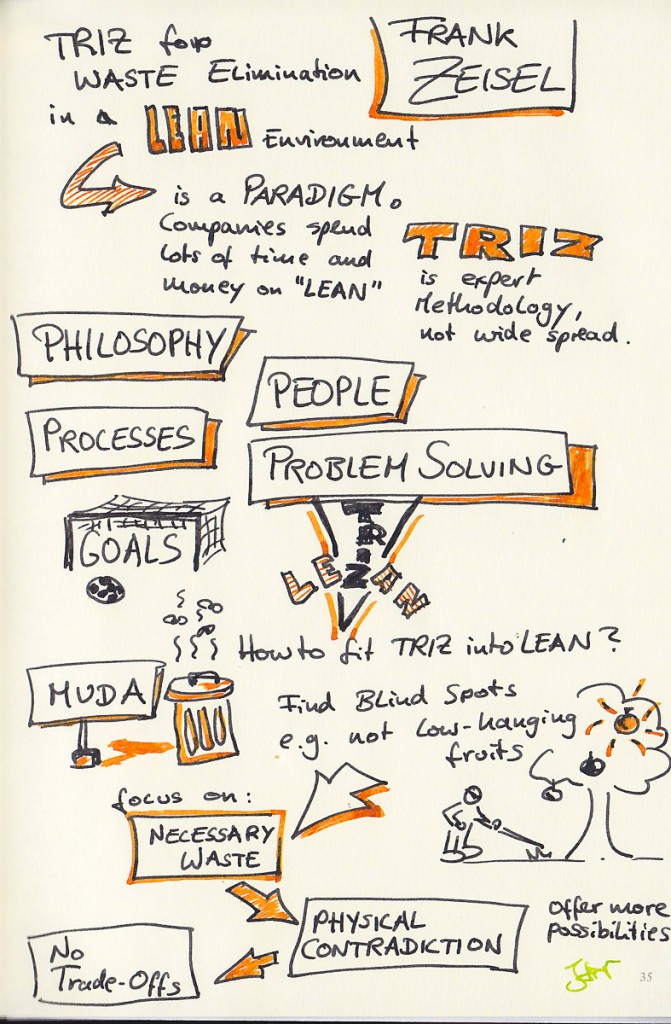 TRIZ for
WASTE Elimination
in a LEAN Environment
FRANK
ZEISEL
is a PARADIGM.
Companies spend
lots of time and
money on "LEAN"
TRIZ
is expert
Methodology,
not wide spread.
PHILOSOPHY
PEOPLE
PROCESSES
PROBLEM SOLVING
GOALS
TRIZ
LEAN
How to fit TRIZ into LEAN?
MUDA
Find Blind Spots
e.g. not low-hanging
fruits
focus on:
NECESSARY
WASTE
PHYSICAL
CONTRADICTION
Offer more
possibilities
No
Trade-Offs
35